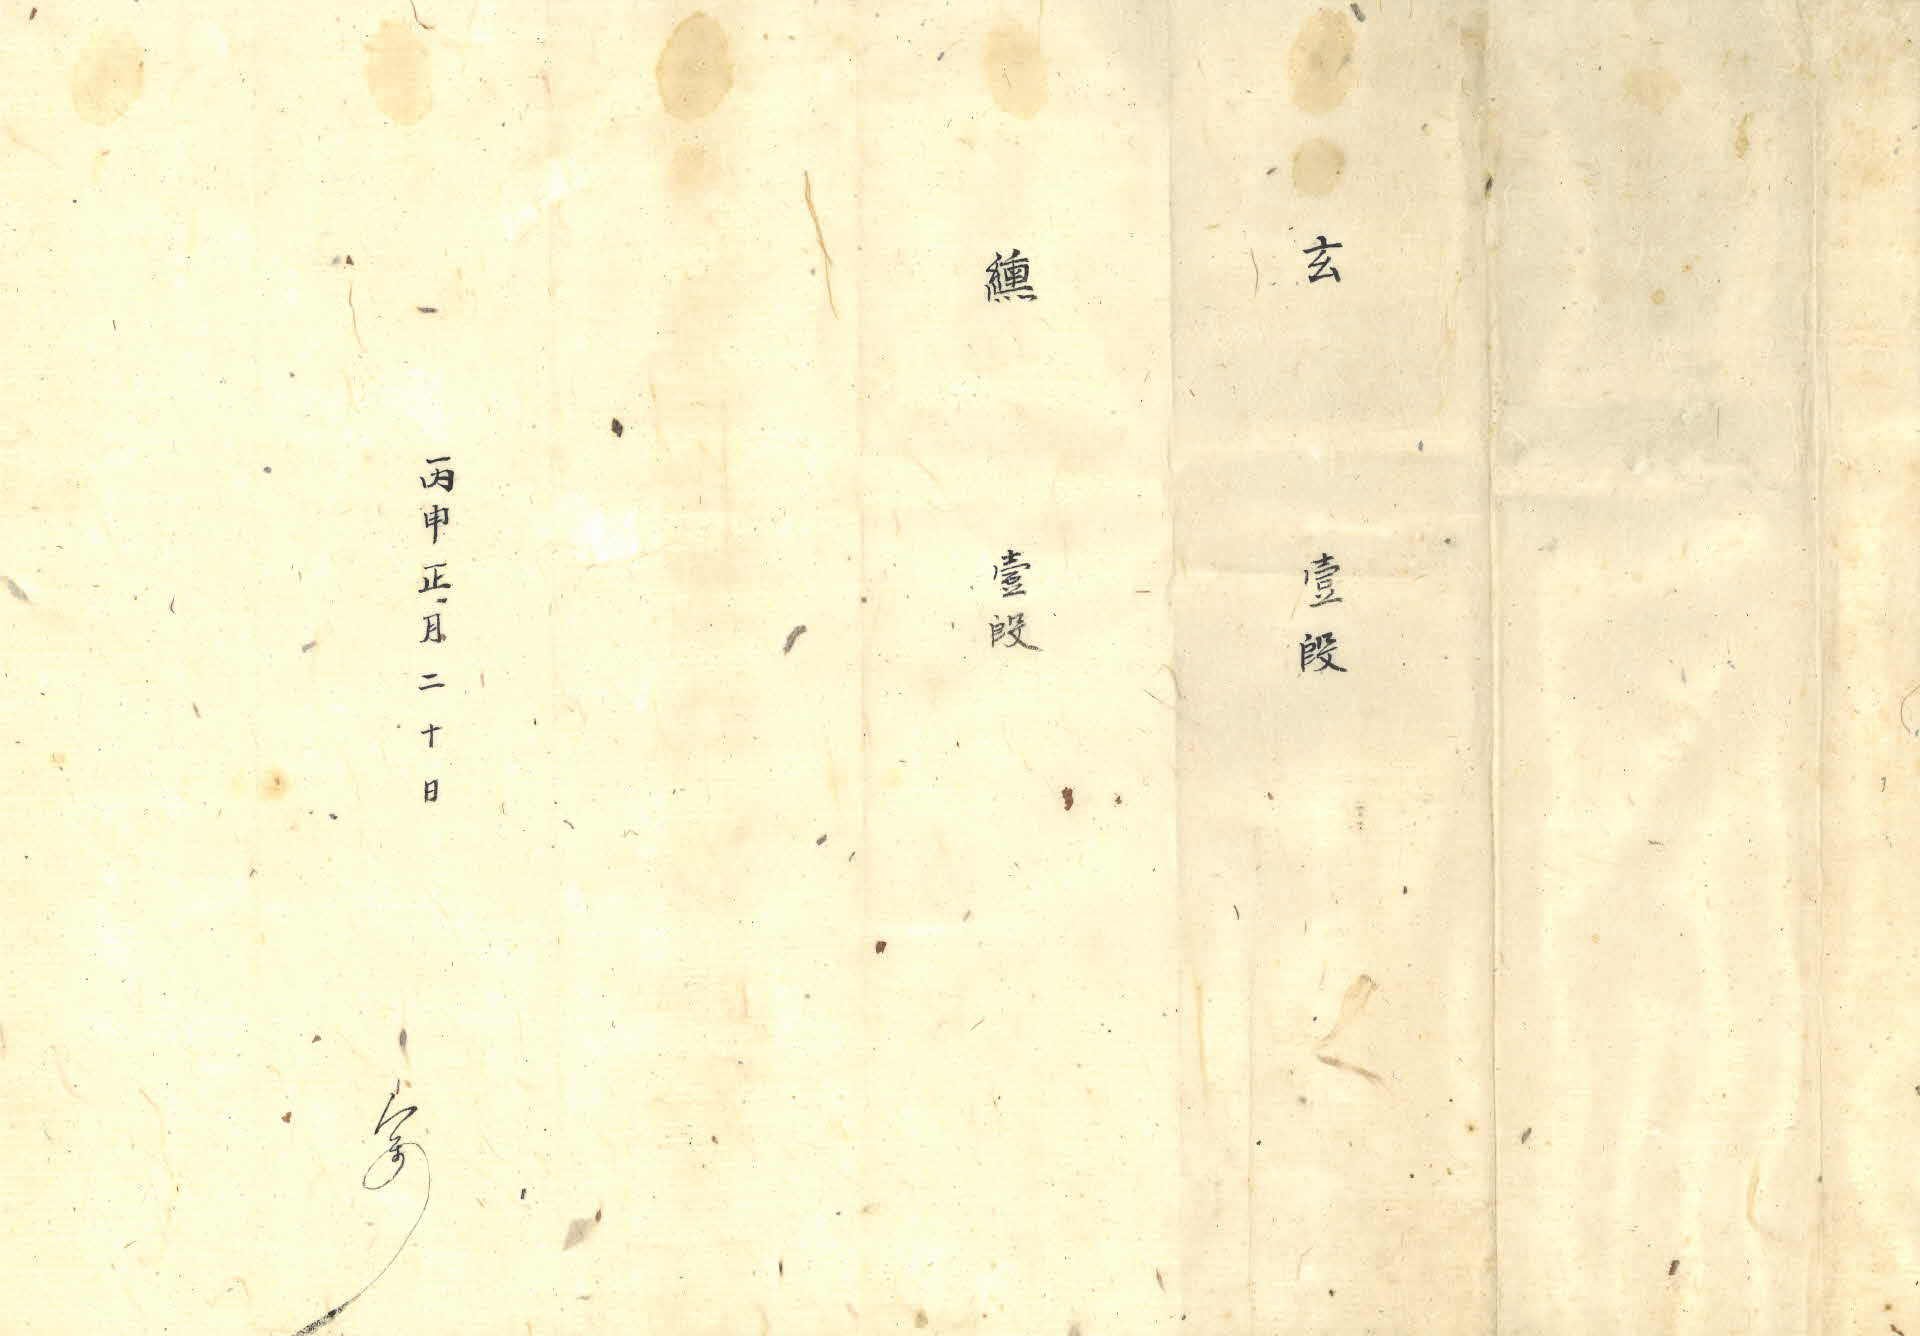 玄 壹段
纁 壹段
丙申正月二十日